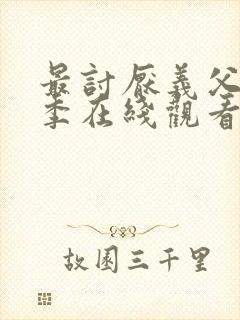 最討厭義父
季在綫觀看
故園三千里